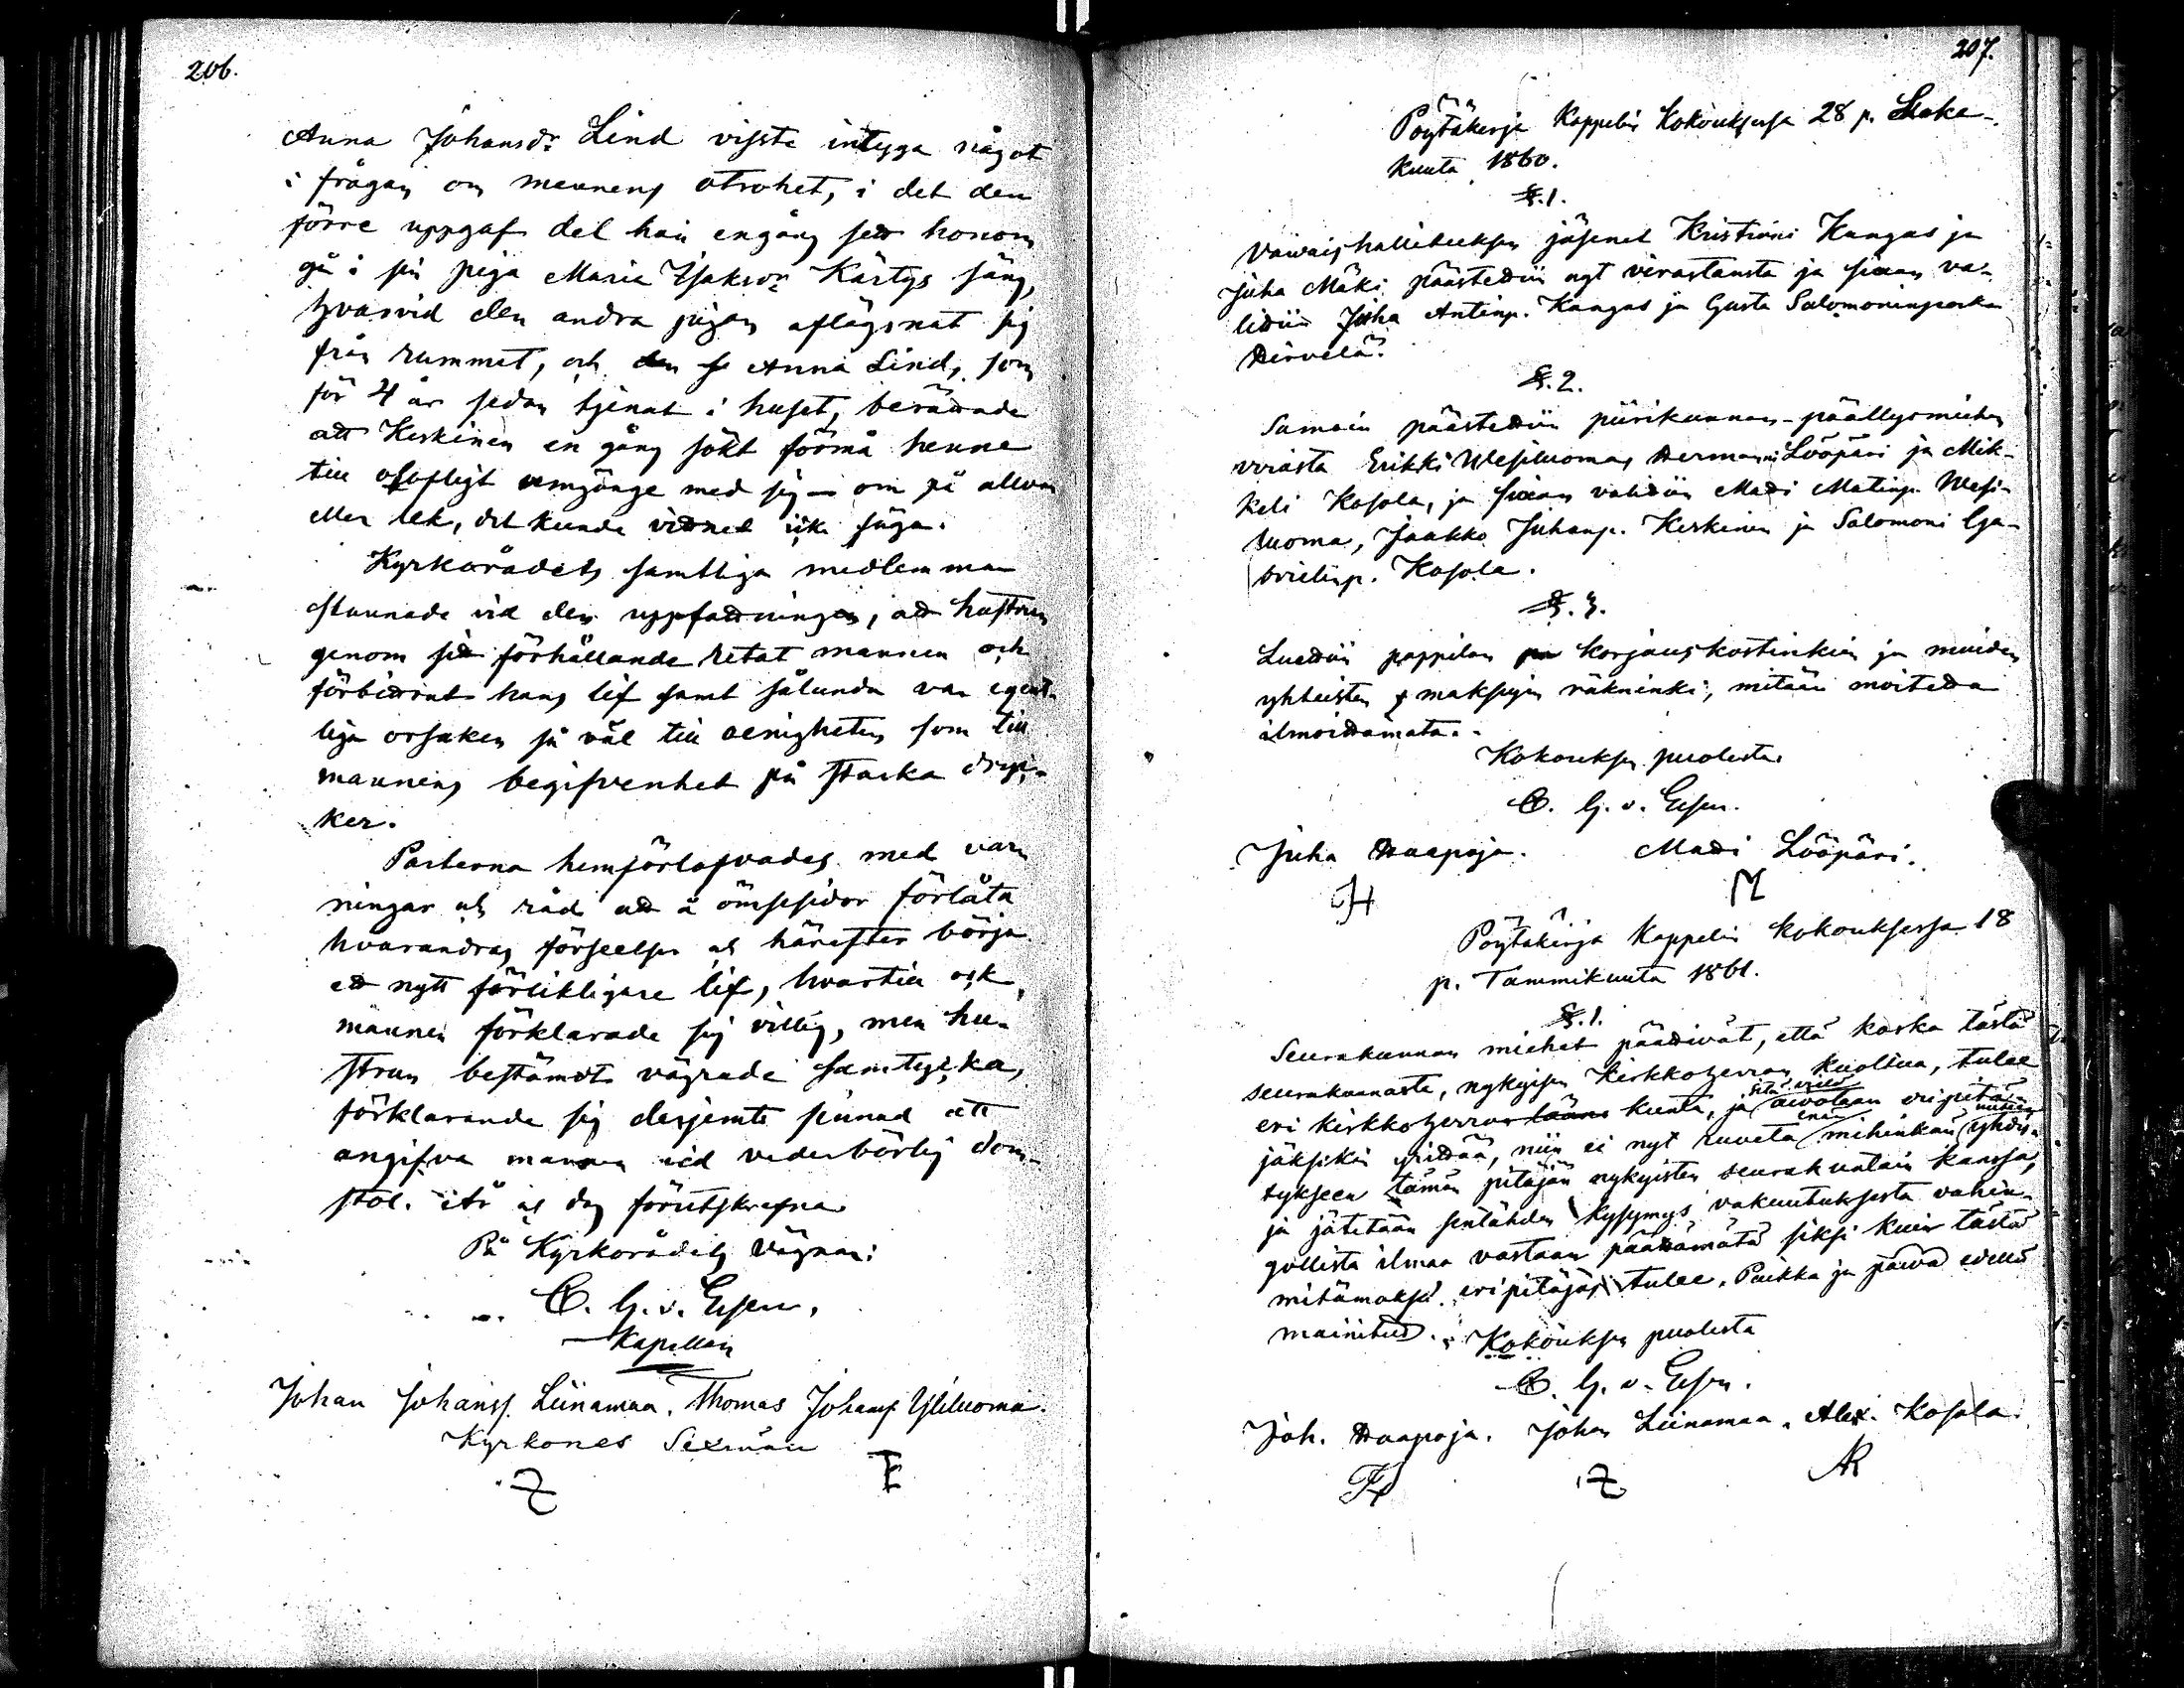 206.
Anna Johansdr Lind visste intyga något
i frågan om mannens otrohet, i det den
förre uppgaf det han engång sett honom
gå i sin piga Maria Isaksdr Kärtys säng,
hvarvid den andra pigan aflägsnat sig
från rummet, och den s Anna Lind, som
för 4 år sedan tjenat i huset, berättade
att Keskinen en gång sökt förmå henne
till olofligt umgänge med sig – om på allvar
eller lek, det kunde vittnet icke säga.
Kyrkorådets samtliga medlemmar
stannade vid den uppfattningen, att hustrun
genom sitt förhållande retat mannen och
förbittrat hans lif samt sålunda var egent-
liga orsaken så väl till oenigheten som till
mannens begifvenhet på starka dryc-
ker.
Parterna hemförlofvades med var-
ningar och råd att å ömsesidor förlåta
hvarandras förseelser och härefter börja
ett nytt förlikligare lif, hvartill ock
mannen förklarade sig villig, men hu-
strun bestämdt vägrade samtycka,
förklarande sig desjemte sinnad att
angifva mannen vid vederbörlig dom-
stol. År och dag förutskrefna
På Kyrkorådets vägnar:
C. G. v. Essen,
Kapellan
Johan Johanss. Liinamaa. Thomas Johanss Yliluoma.
Kyrkones Sexmän
Z T
207.
Pöytäkirja Kappelin Kokouksessa 28 p. Loka-
kuuta 1860.
§. 1.
Vaivaishallituksen jäsenet Kristiani Kangas ja
Juha Mäki päästettiin nyt virastansta ja siaan va-
littiin Juha Antinp. Kangas ja Gusta Salomoninpoika
Hirvelä.
§. 2.
Samoin päästettiin piirikunnan-päällysmiehen
virasta Erikki Wesiluoma, Hermanni Lööpäri ja Mik-
keli Kosola, ja siaan valittiin Matti Matinp. Wesi-
luoma, Jaakko Juhanp. Keskinen ja Salomoni Ga-
brielinp. Kosola.
§. 3.
Luettiin pappilan korjauskostinkin ja muiden
yhteisten maksujen räkninki, mitään moitetta
ilmoittamata.
Kokouksen puolesta
C. G. v. Essen.
Juha Haapoja. Matti Lööpäri.
H M
Pöytäkirja Kappelin kokouksessa 18
p. Tammikuuta 1861.
§. 1.
Seurakunnan miehet päättivät, että koska tästä
seurakunnasta, nykyisen Kirkkoherran kuoltua, tulee
eri kirkkoherran lääni kunta, ja sitä vielä aiotaan eripitä-
jäksikin yrittää, niin ei nyt ruveta enää mihinkään uuteen yhdis-
tykseen tämän pitäjän nykyisten seurakuntain kanssa,
ja jätetään sentähden kysymys vakuutuksesta vahin-
gollista ilmaa vastaan päättämätä siksi kuin tästä
mitämaksi eripitäjäs tulee. Paikka ja päivä edellä
mainitud. Kokouksen puolesta
C. G. v. Essen.
Joh. Haapoja. Johan Liinamaa. Alex. Kosola.
Z AK